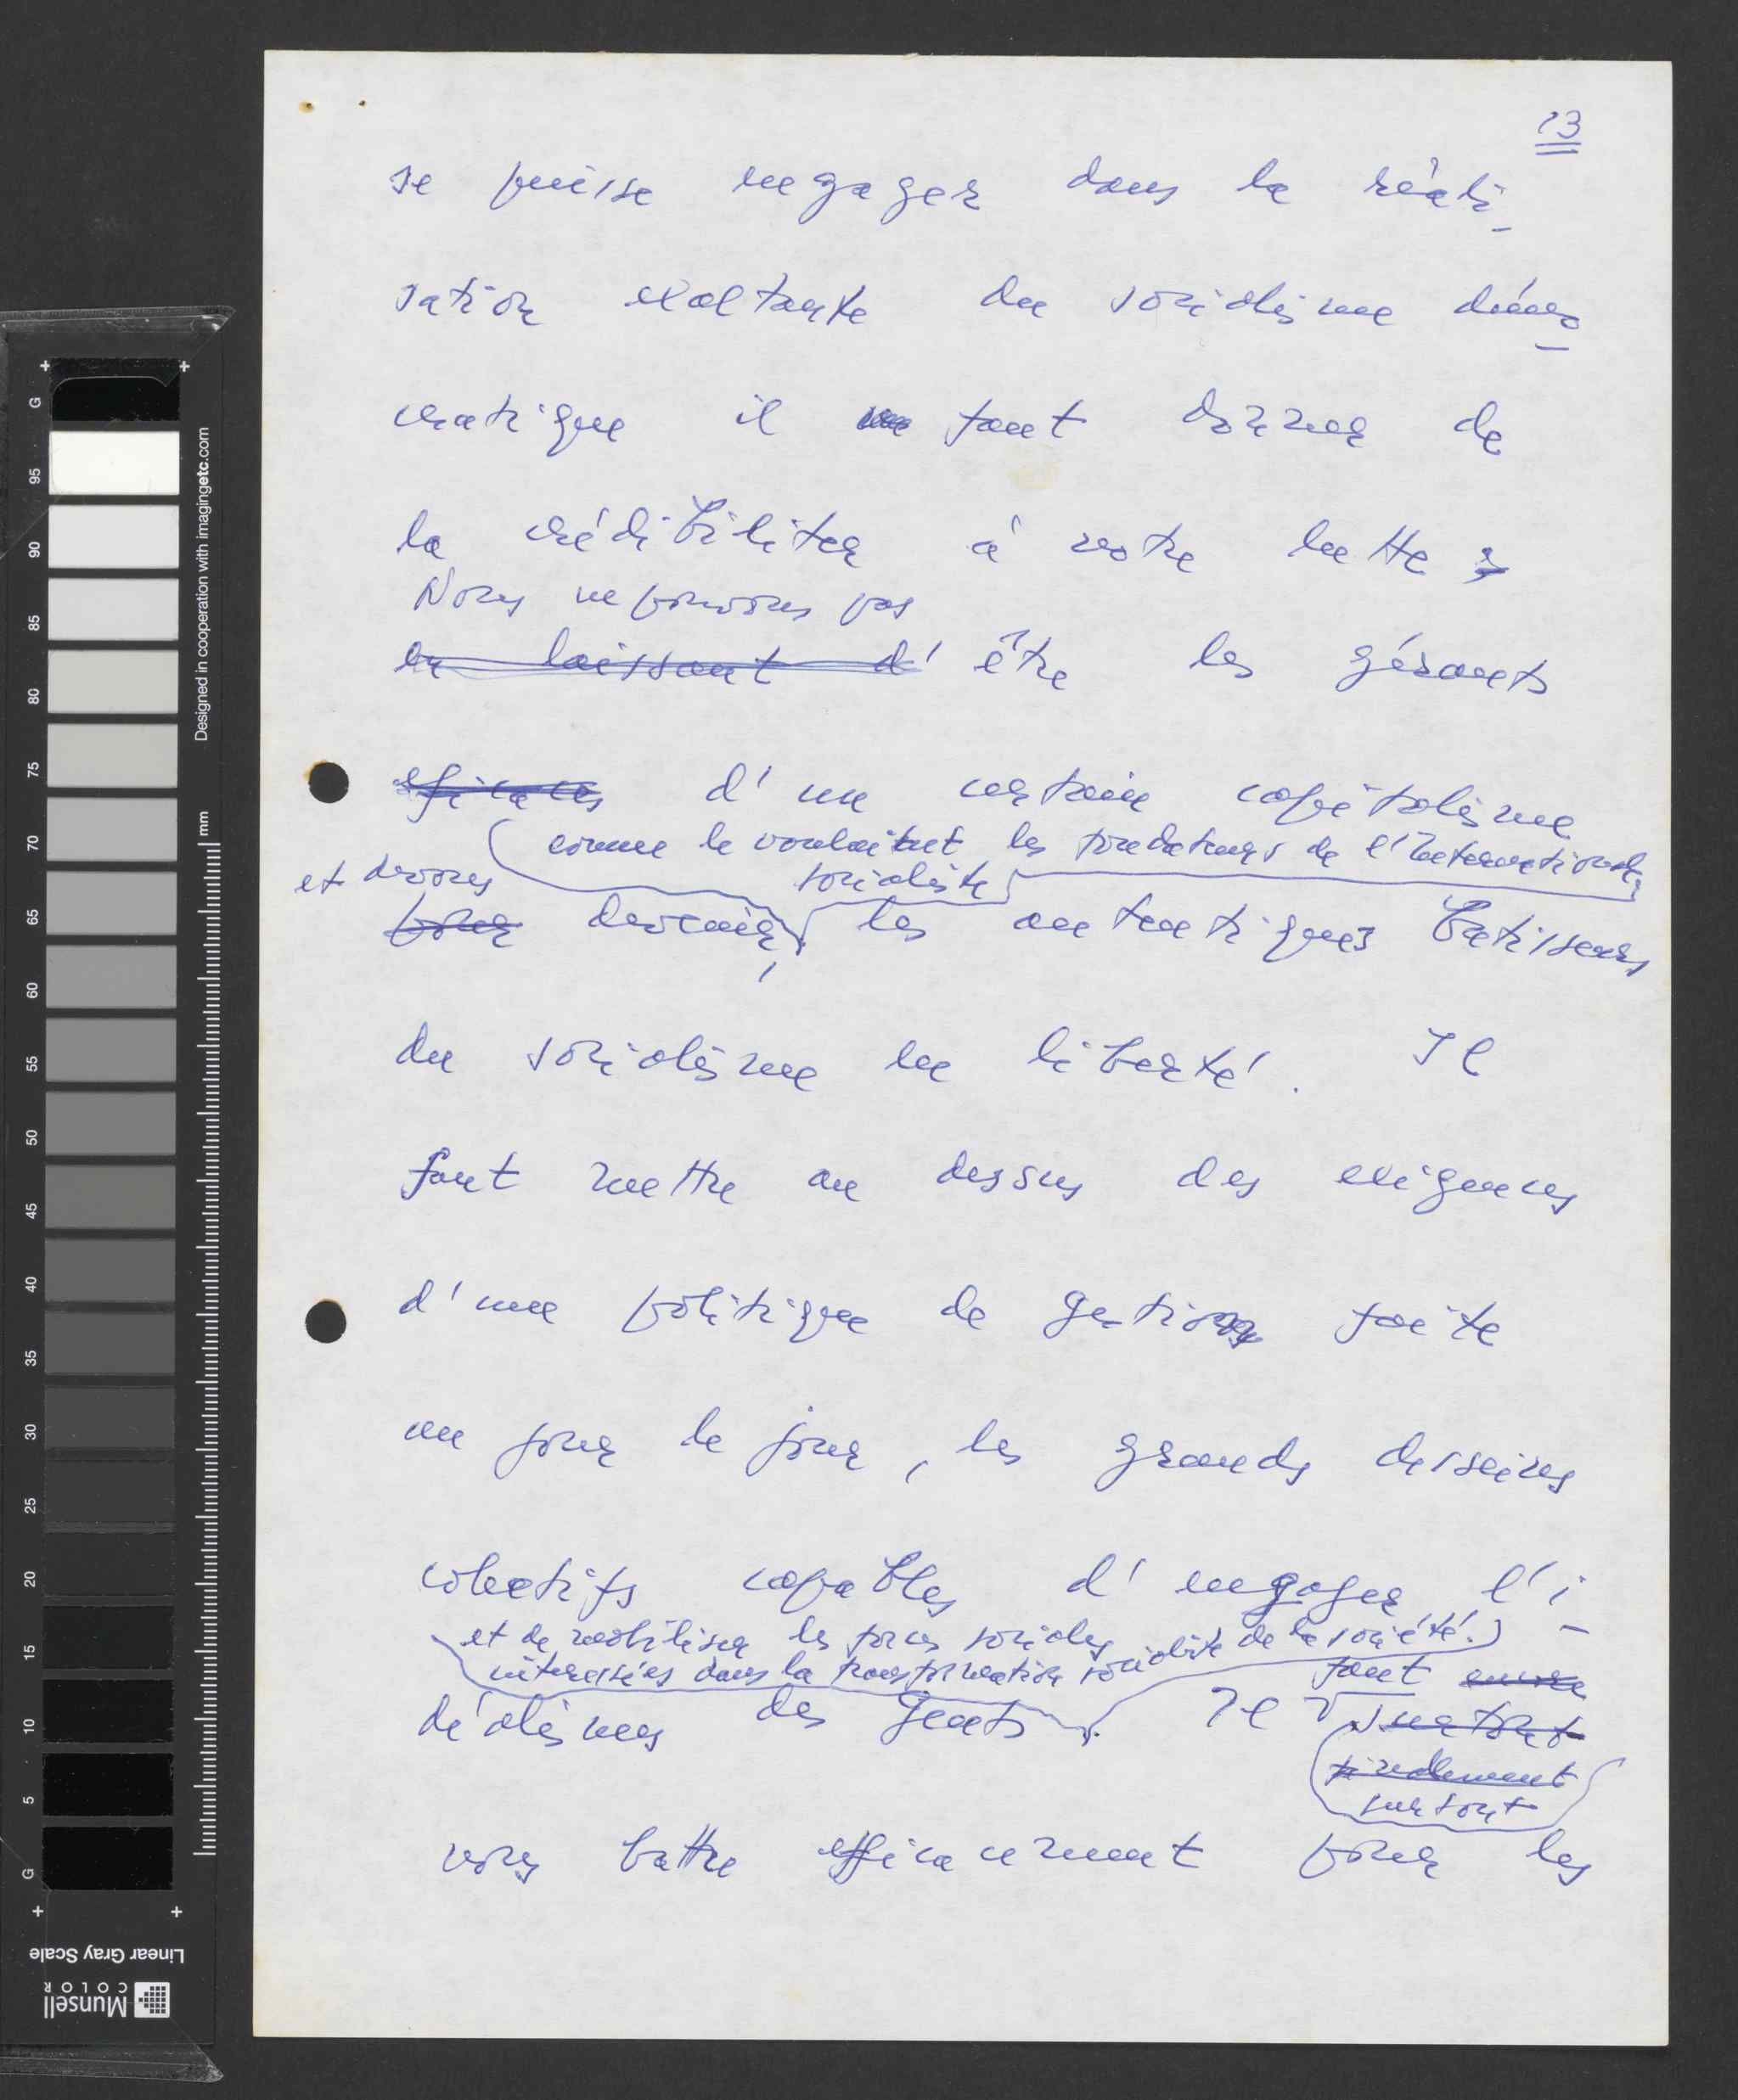 13
se puisse engager dans la réali-
sation exaltante du socialisme démo-
cratique il faut donner de
la crédibiliter à notre lutte
Nous ne pouvons pas
en laissant d' être les gérants
eficaces d'un certain capitalisme
comme le voulaient les fondateurs de l'Internationale
et devons socialiste
pour devenir, les autentiques batisseurs
du socialisme en liberté. Il
faut mettre au dessus des exigences
d'une politique de gestion faite
au jour le jour, les grands desseins
colectifs capables d'engager l'i-
et de mobiliser les forces sociales
intéressées dans la transformation socialiste de la société.
déalismes des gents. Il faut encore
surtout
finallement
surtout
nous battre efficacement pour les
Designed in cooperation with imagingetc.com
mm
G 95 90 85 80 75 70 65 60 55 50 45 40 35 30 25 20 15 10 5 G
Linear Gray Scale
Munsell
COLOR